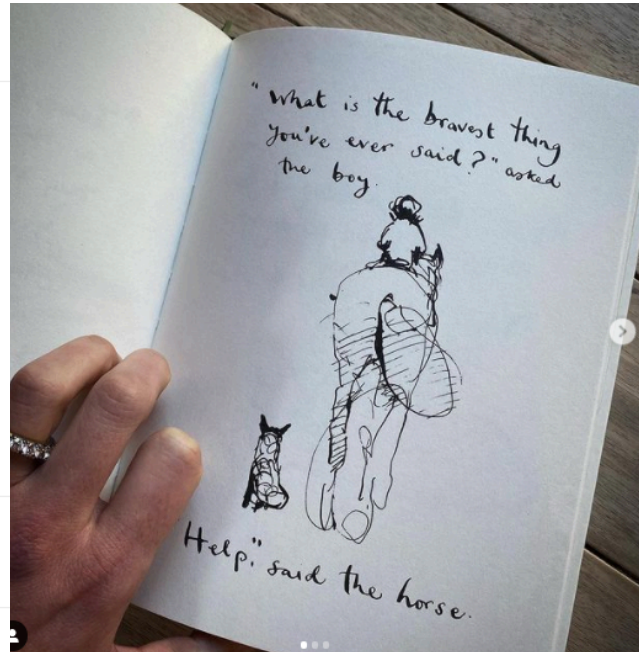 "What is the bravest thing
you've ever said?" asked
the boy.
Help." said the horse.